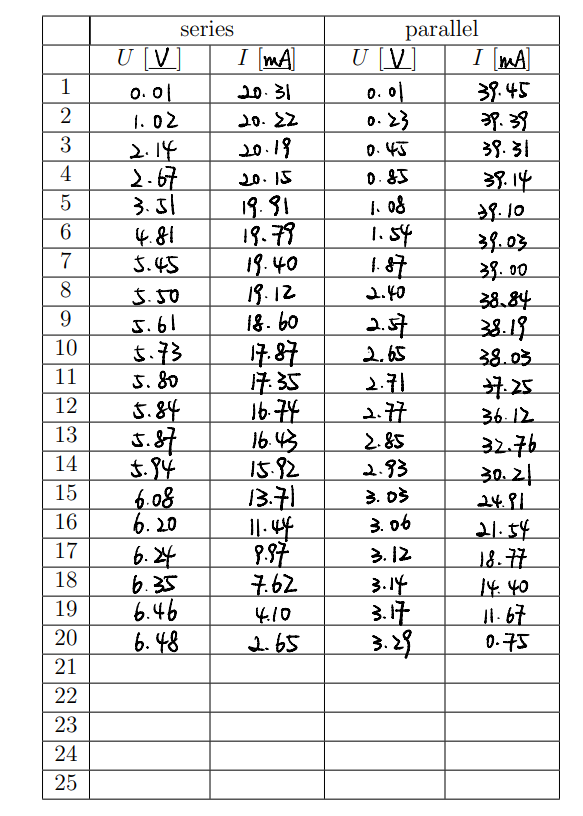 series parallel
U [V] I [mA] U [V] I [mA]
1 0.01 20.31 0.01 39.45
2 1.02 20.22 0.23 39.39
3 2.14 20.19 0.45 39.31
4 2.67 20.15 0.85 39.14
5 3.51 19.91 1.08 39.10
6 4.81 19.79 1.54 39.03
7 5.45 19.40 1.87 39.00
8 5.50 19.12 2.40 38.84
9 5.61 18.60 2.57 38.19
10 5.73 17.87 2.65 38.03
11 5.80 17.35 2.71 37.25
12 5.84 16.74 2.77 36.12
13 5.87 16.43 2.85 32.76
14 5.94 15.92 2.93 30.21
15 6.08 13.71 3.03 24.91
16 6.20 11.44 3.06 21.54
17 6.24 9.97 3.12 18.77
18 6.35 7.62 3.14 14.40
19 6.46 4.10 3.17 11.67
20 6.48 2.65 3.29 0.75
21
22
23
24
25